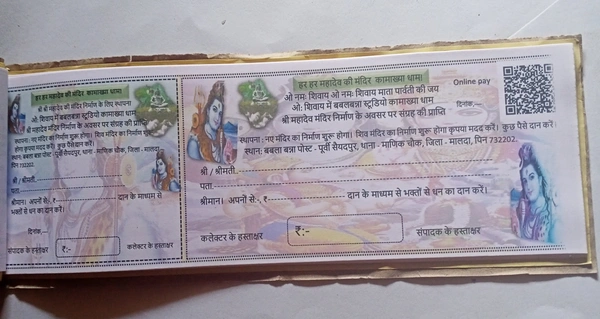 हर हर महादेव की मंदिर कामाख्या धाम।
श्री श्री महादेव की मंदिर निर्माण के लिए स्थापना
ओ: शिवाय में बबलबन्ना स्टूडियो कामाख्या धाम
श्री महादेव मंदिर निर्माण के अवसर पर संग्रह की प्राप्ति
स्थापना: नए मंदिर का निर्माण शुरू होगा। शिव मंदिर का निर्माण शुरू
होगा कृपया मदद करें। कुछ पैसे दान करें।
स्थान: बबला बन्ना पोस्ट - पूर्वी सैयदपुर, थाना - माणिक चौक, जिला - मालदा,
पिन 732202.
श्री / श्रीमती.
पता
श्रीमान। अपनी से:-, ₹ दान के माध्यम से
भक्तों से धन का दान करें।
दिनांक,
संपादक के हस्ताक्षर ₹:-
हर हर महादेव की मंदिर कामाख्या धाम।
ओ नमः शिवाय ओ नमः शिवाय माता पार्वती की जय
Online pay
ओ: शिवाय में बबलबन्ना स्टूडियो कामाख्या धाम
दिनांक,
श्री महादेव मंदिर निर्माण के अवसर पर संग्रह की प्राप्ति
स्थापना : नए मंदिर का निर्माण शुरू होगा। शिव मंदिर का निर्माण शुरू होगा कृपया मदद करें। कुछ पैसे दान करें।
स्थान: बबला बन्ना पोस्ट - पूर्वी सैयदपुर, थाना - माणिक चौक, जिला - मालदा, पिन 732202.
श्री / श्रीमती.
पता.
श्रीमान। अपनी से:-, ₹ दान के माध्यम से भक्तों से धन का दान करें।
कलेक्टर के हस्ताक्षर ₹:- संपादक के हस्ताक्षर